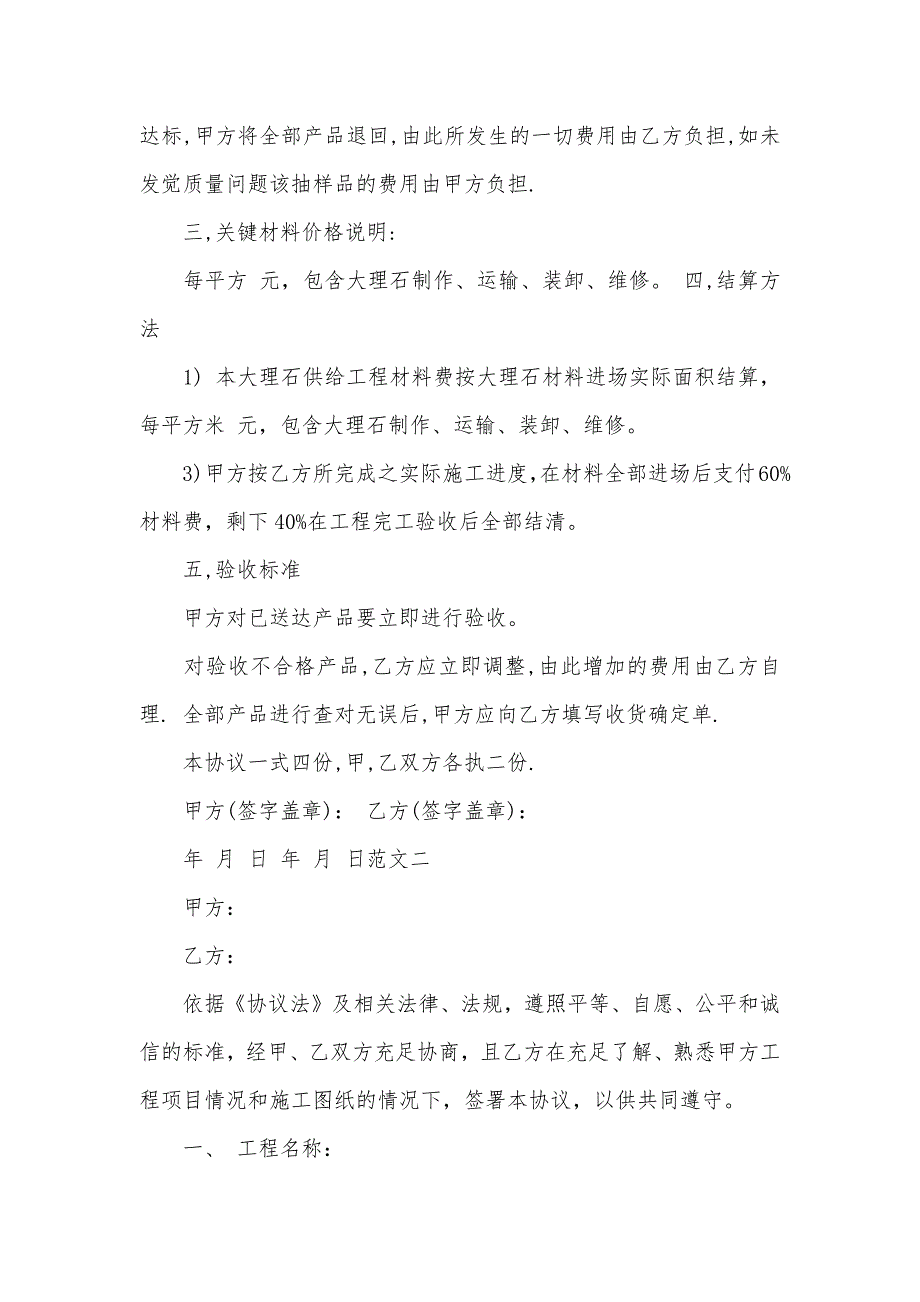 达标,甲方将全部产品退回,由此所发生的一切费用由乙方负担,如未
发觉质量问题该抽样品的费用由甲方负担.
三,关键材料价格说明:
每平方 元，包含大理石制作、运输、装卸、维修。 四,结算方
法
1) 本大理石供给工程材料费按大理石材料进场实际面积结算，
每平方米 元，包含大理石制作、运输、装卸、维修。
3)甲方按乙方所完成之实际施工进度,在材料全部进场后支付60%
材料费，剩下40%在工程完工验收后全部结清。
五,验收标准
甲方对已送达产品要立即进行验收。
对验收不合格产品,乙方应立即调整,由此增加的费用由乙方自
理. 全部产品进行查对无误后,甲方应向乙方填写收货确定单.
本协议一式四份,甲,乙双方各执二份.
甲方(签字盖章)： 乙方(签字盖章)：
年 月 日 年 月 日范文二
甲方：
乙方：
依据《协议法》及相关法律、法规，遵照平等、自愿、公平和诚
信的标准，经甲、乙双方充足协商，且乙方在充足了解、熟悉甲方工
程项目情况和施工图纸的情况下，签署本协议，以供共同遵守。
一、 工程名称：